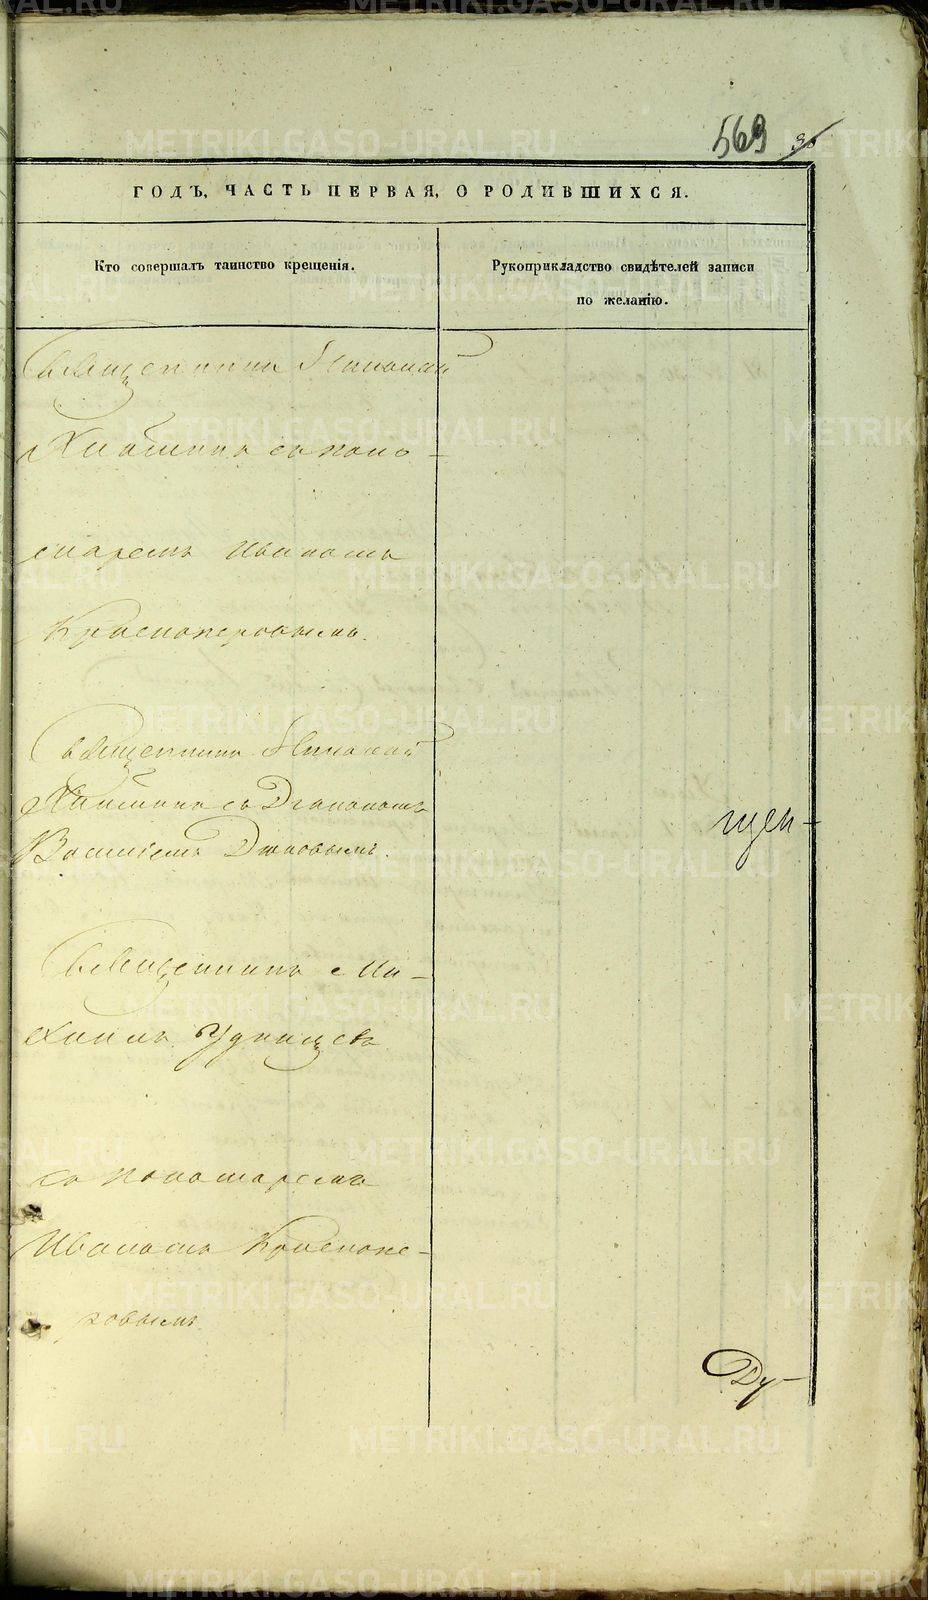 569 36
ГОДЪ, ЧАСТЬ ПЕРВАЯ, О РОДИВШИХСЯ.
Кто совершалъ таинство крещенія.
Рукоприкладство свидѣтелей записи
по желанію.
Священникъ Николай
съ поно-
маремъ Иваномъ
Красноперовымъ.
Священникъ Николай
съ Діакономъ
Василіемъ
щен-
Священникъ Ми-
хаилъ Удинцевъ
съ пономаремъ
Иваномъ Краснопе-
ровымъ.
Ду-
METRIKI.GASO-URAL.RU